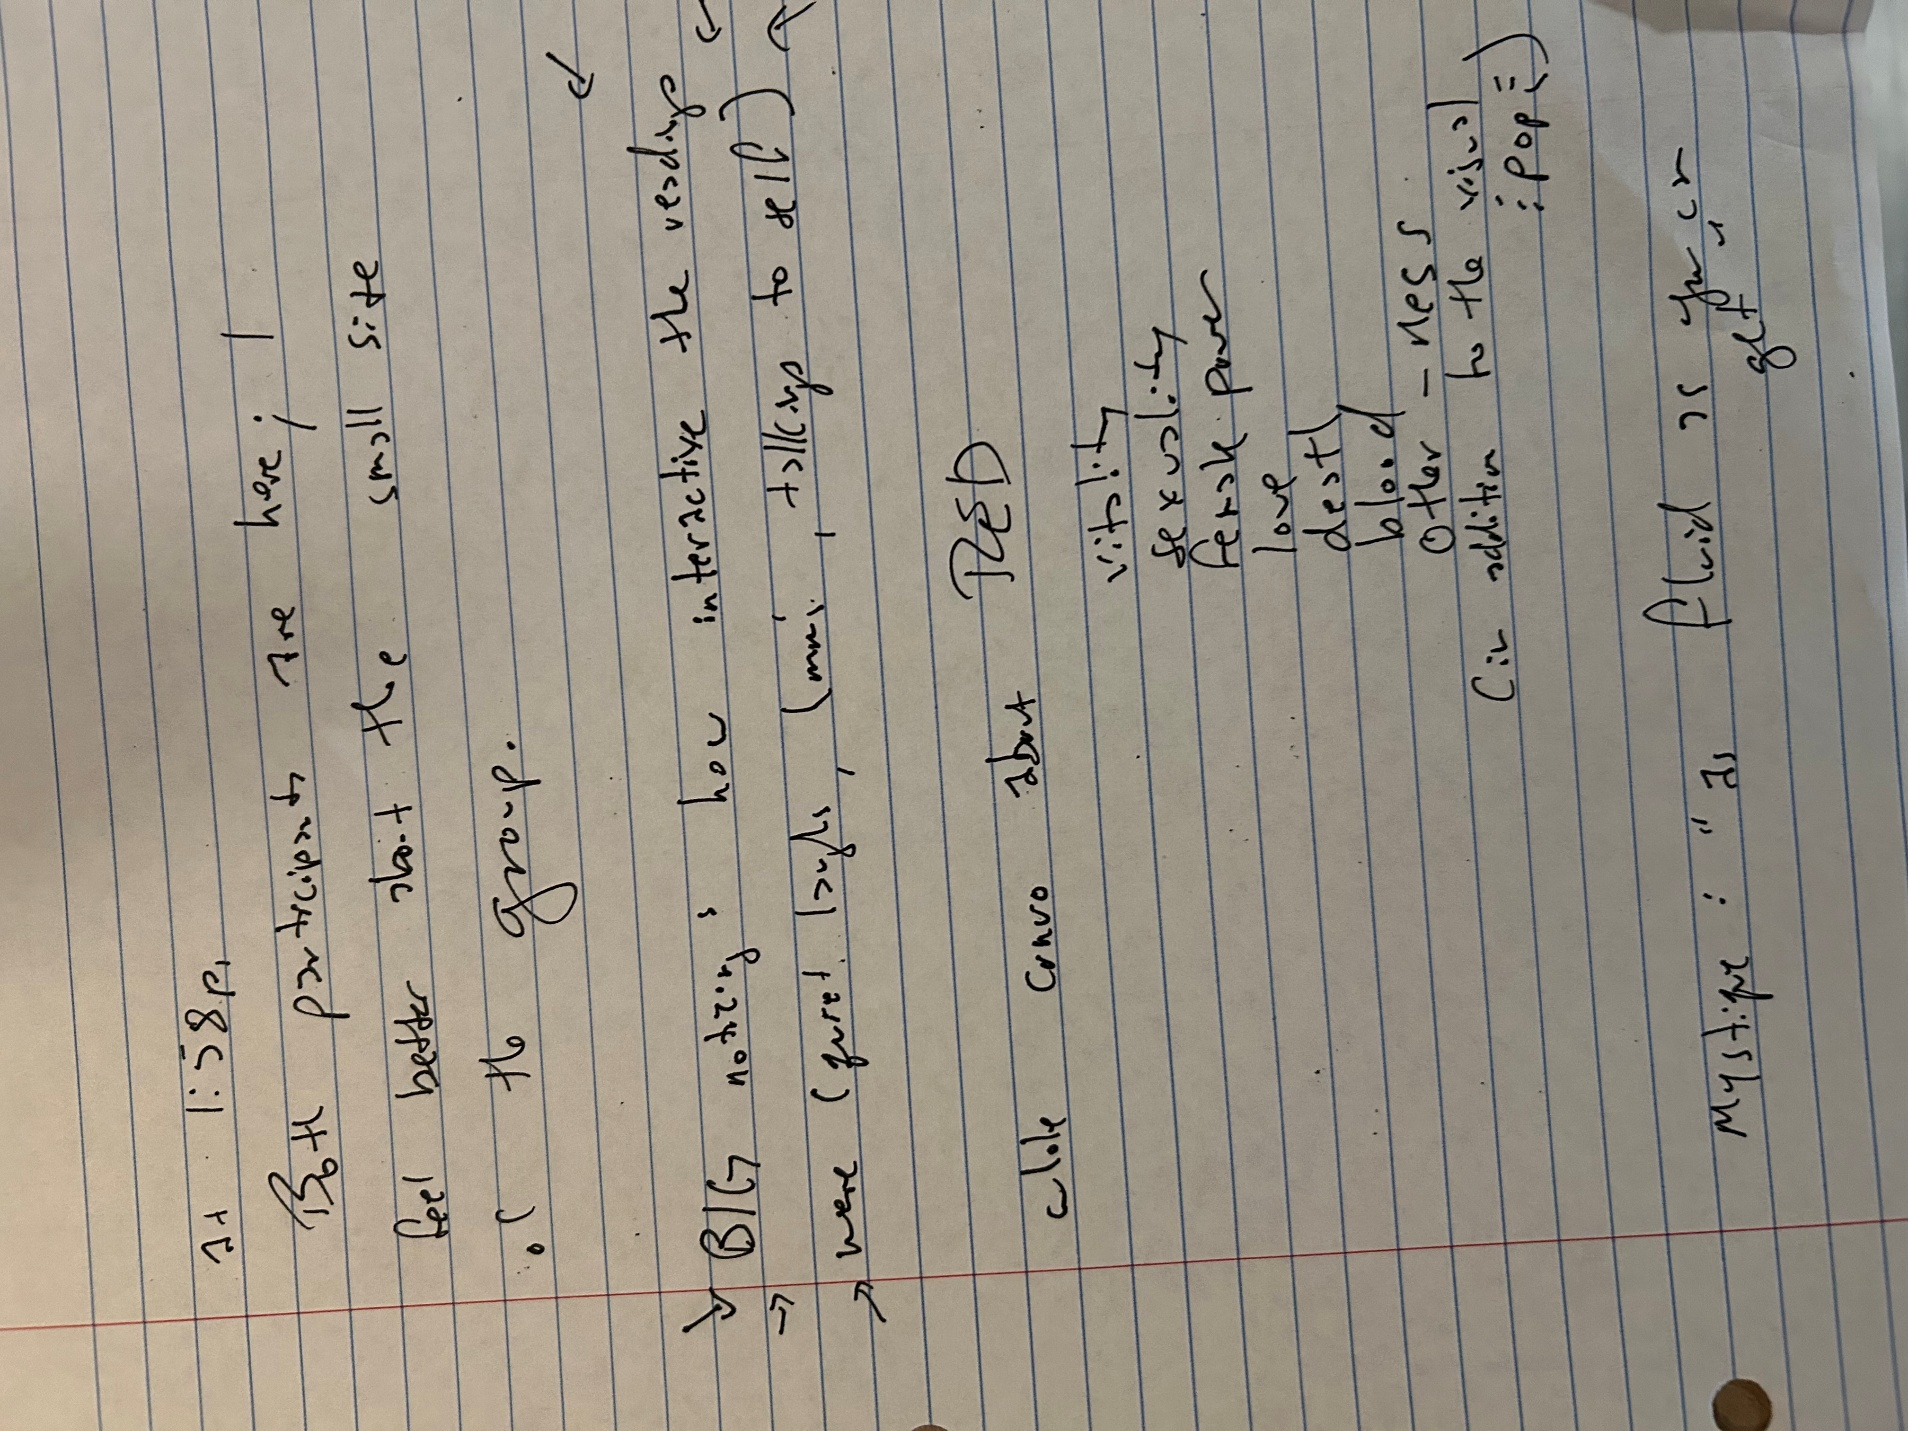 at 1:58p,
Both participants are here; I
feel better about the small size
of the group.
BIG noticing: how interactive the readings
were (quiet laughs, (mm), talking to self)
whole convo about RED
vitality
sexuality
female power
love
death
blood
Other-ness
(in addition to the visual
"pop")
Mystique: "as fluid as you can
get"